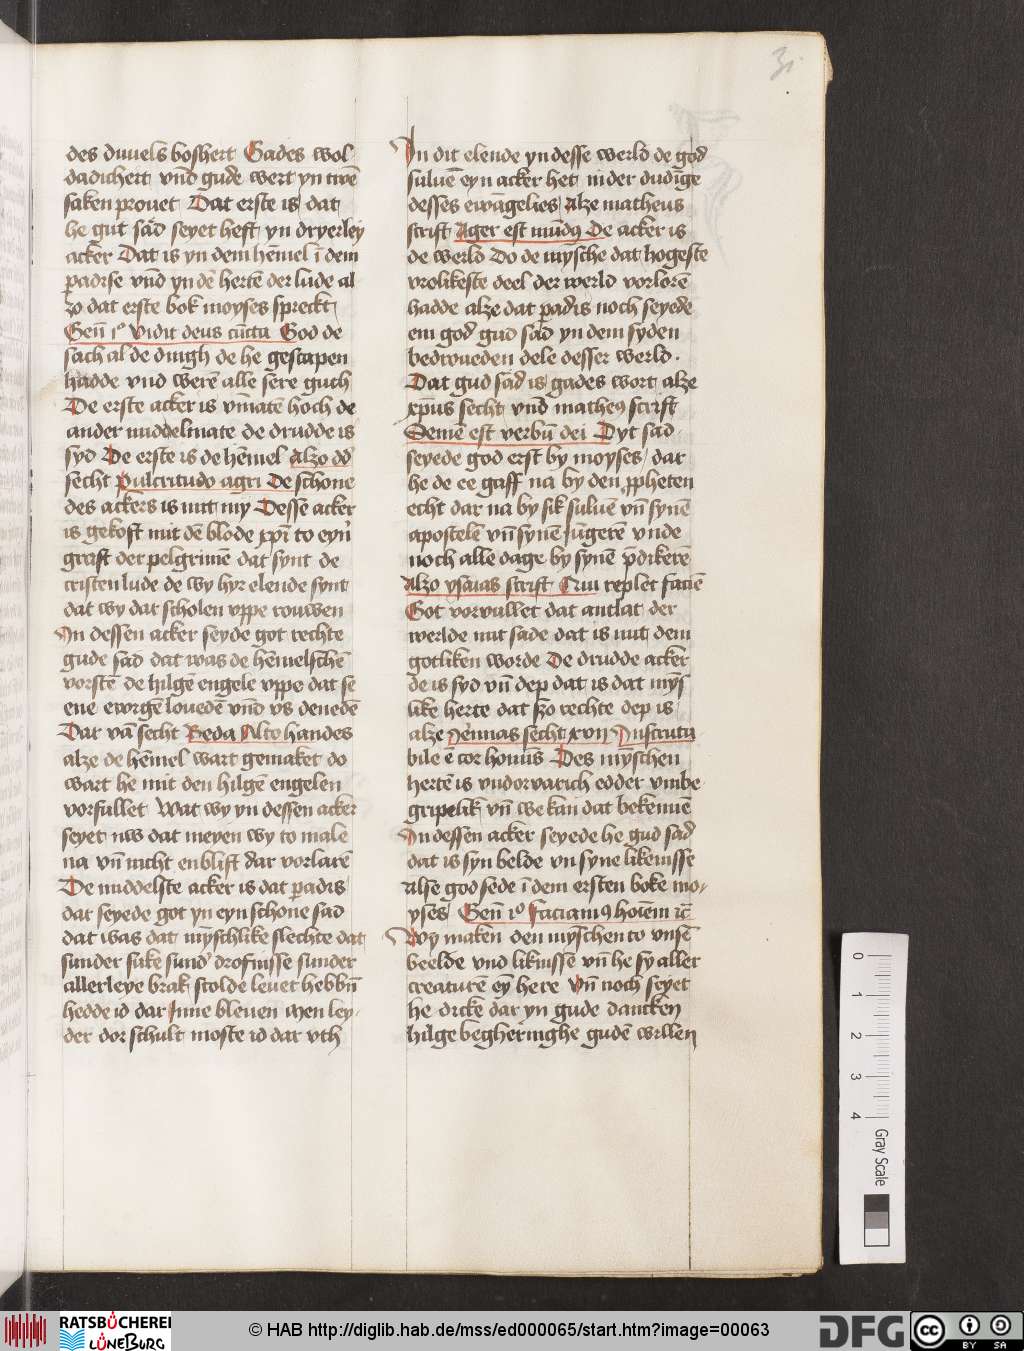 31
des duuels bosheit Gades wol
dadicheit vnd gude wert yn twē
saken prouet Dat erste is dat
he gut sad seyet heft yn dryerley
acker Dat is yn dem hēmel ī dem
padise vnd yn dē hertē der lude al
zo dat erste bok moyses spreckt
Geñ i° Vidit deus cūcta God de
sach al de dingh de he gescapen
hadde vnd werē alle sere guth
De erste acker is vmatē hoch de
ander middelmate de drudde is
syd De erste is de hēmel Alzo dd
secht Pulcritudo agri De schone
des ackers is mit my Desse acker
is gekoft mit dē blode xpī to eyn
graft der pelgrimē dat synt de
cristen lude de wy hyr elende synt
dat wy dat scholen vppe rouwen
In dessen acker seyde got rechte
gude sad dat was de hēmelschē
vorstē de hilgē engele vppe dat se
ene ewigē louedē vnd vs denedē
Dar vā secht Beda Alto handes
alze de hēmel wart gemaket do
wart he mit den hilgē engelen
vorfullet Wat wy yn dessen acker
seyet nw dat meyen wy to male
na vñ nicht en blift dar vorlarē
De middelste acker is dat padis
dar seyede got yn eyn schone sad
dat was dat myschlike slechte dat
sunder suke sund drofnisse sunder
allerleye brak scolde leuet hebbñ
hedde id dar inne bleuen men ley
der dor schult moste id dar vth
In dit elende yn desse werld de god
suluē eyn acker het in der dudīge
desses ewāgelies Alze matheus
scrift Ager est mūd9 De acker is
de werld Do de mysche dat hogeste
vrolikeste deel der werld vorlorē
hadde alze dat padis noch seyede
em god gud sad yn dem syden
bedroueden dele desser werld
Dat gud sad is gades wort alze
xp̄us secht vnd mathe9 scrift
Semē est verbū dei Dyt sad
seyede god erst by moyses dar
he de ee gaff na by den ppheten
echt dar na by sik suluē vñ synē
apostelē vñ synē iūgerē vnde
noch alle dage by synē pdikerē
Alzo ysaias scrift Crui replet faciē
Got vorvullet dat antlat der
werlde mit sade dat is mit dem
gotliken worde De drudde acker
de is syd vñ dep dat is dat mȳs
like herte dat so rechte dep is
alze Jeimias secht xvij Inscrutu
bile ē cor homīs Des myschen
hertē is vndorvarich edder vmbe
gripelik vñ we kan dat bekennē
In dessen acker seyede he gud sad
dat is syn belde vn syne likenisse
alse god sede ī dem ersten boke mo
yses Geñ i° Faciam9 hoīem ic
Wy maken den myschen to vnsē
beelde vnd liknissē vñ he sy aller
creaturē eȳ here Vñ noch seyet
he dicke dar yn gude dancken
hilge begheringhe gudē willen
0 1 2 3 4
Gray Scale
RATSBÜCHEREI
LÜNEBURG
© HAB http://diglib.hab.de/mss/ed000065/start.htm?image=00063
DFG
cc BY SA